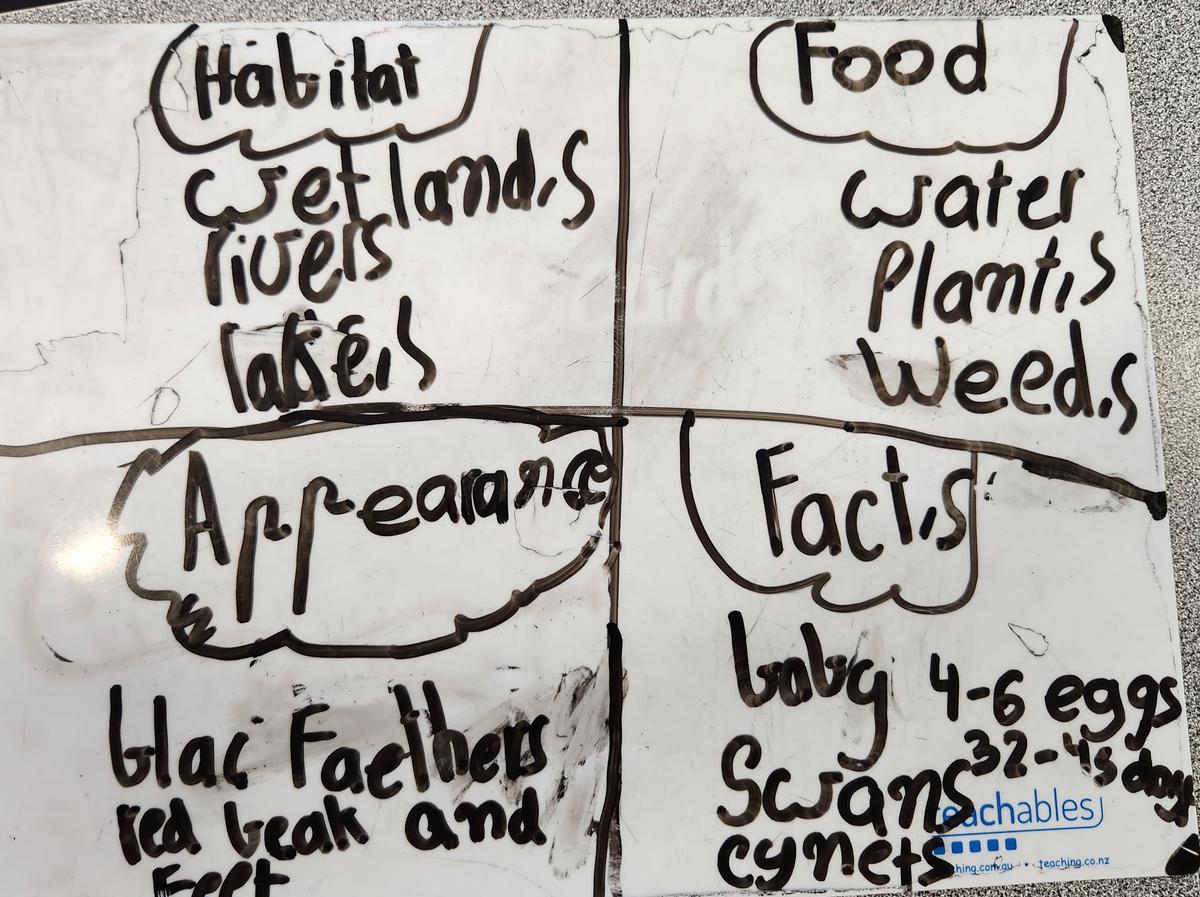 Habitat
wetlands
rivers
lakes
Food
water
Plants
Weeds
Appearance
blac Faethers
red beak and
Feet
Facts
baby
Swans
cynets
4-6 eggs
32-45 day
eachables
hing.com.au • teaching.co.nz